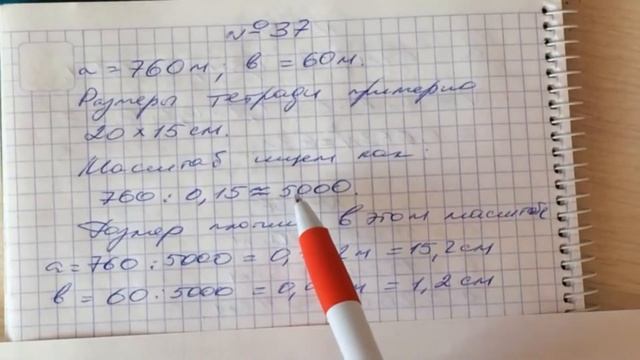 № 37
a = 760 м; в = 60 м.
Размеры тетради примерно
20 × 15 см.
Масштаб ищем как:
760 : 0,15 ≈ 5000.
Размер в этом масштабе
a = 760 : 5000 = 0, 2 м = 15,2 см
в = 60 : 5000 = 0,0 м = 1,2 см